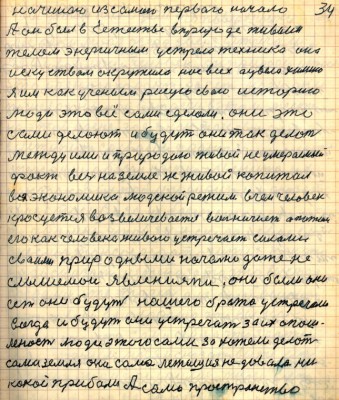 начинаю из самого первого начало 34
А он был в Естестве в природе живым
телом энергичным устрело техника она
искуством окрутила нас всех
Я им как ученым рисую свою историю
люди это всё сами сделали, они это
сами делают и будут они так делать
между ими и природою живой не умерающей
факт вех на земле ж живой капитал
вся экономика людской режим в чем человек
красуется возвеличевается возникает а потом
его как человека живого устречает силами
своими природными начато даже не
слышемой явлениями, они были они
есть они будут нашего брата устречали
всегда и будут они устречать за их
люди этого сами за хотели делать
сама земля она сама не довала ни
какой прибали А само пространство